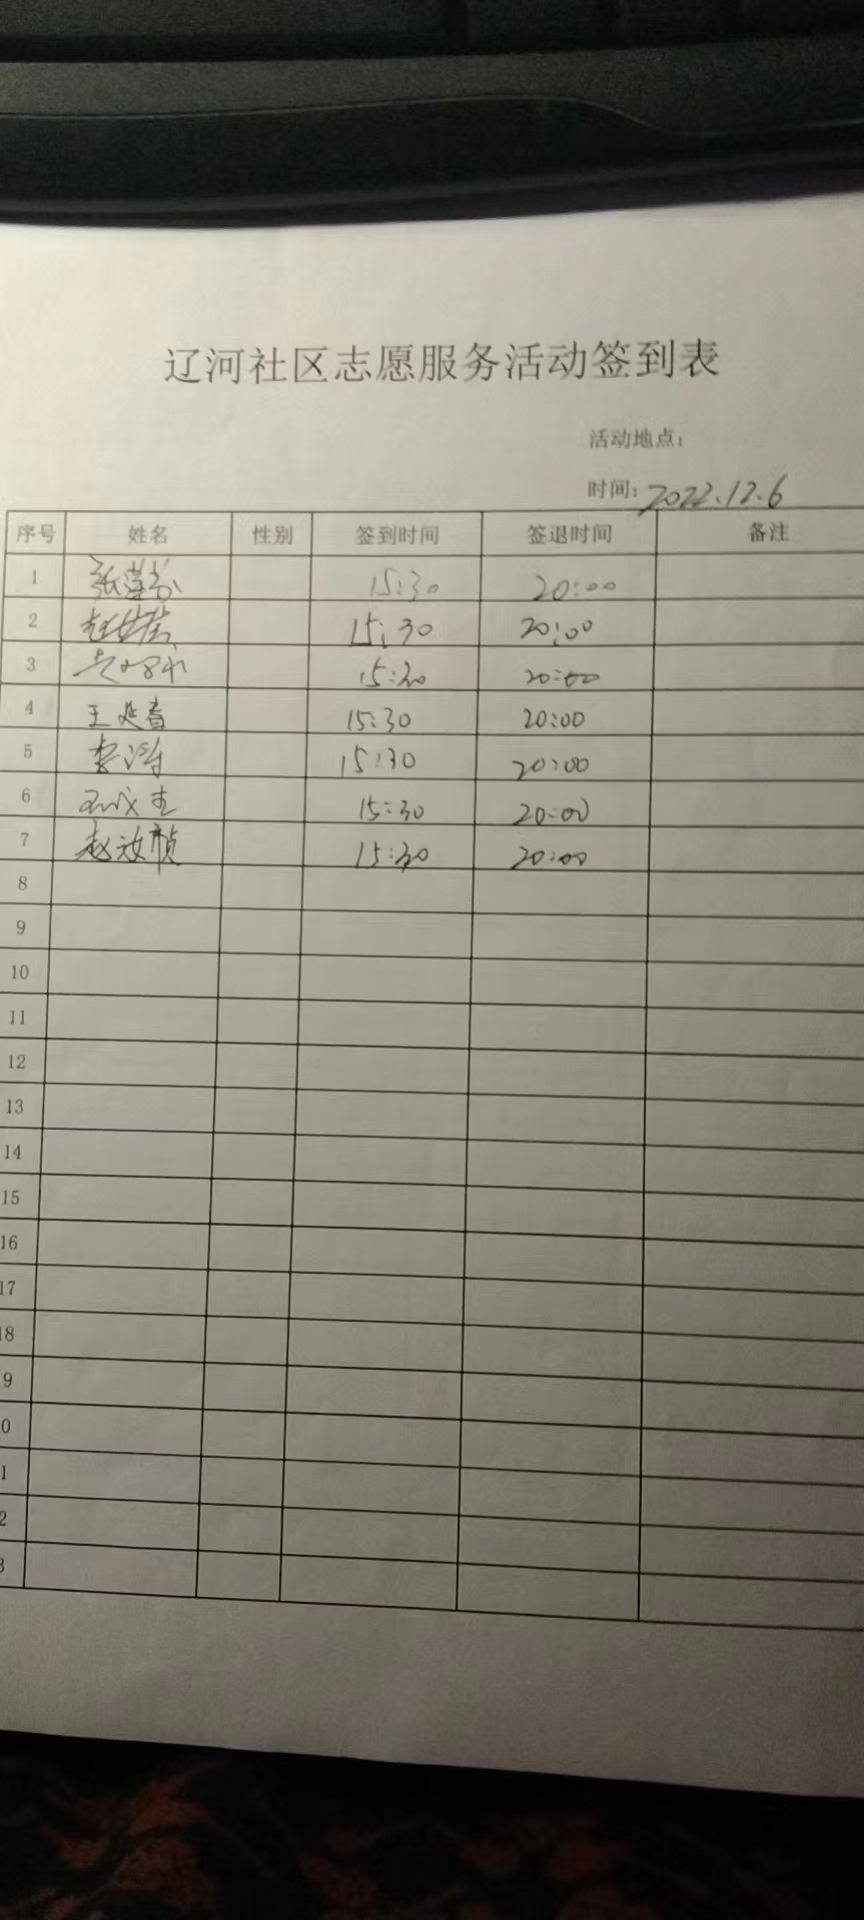 辽河社区志愿服务活动签到表
活动地点:
时间: 2022.12.6
序号 姓名 性别 签到时间 签退时间 备注
1 15:30 20:00
2 15:30 20:00
3 15:30 20:00
4 王延春 15:30 20:00
5 15:30 20:00
6 15:30 20:00
7 赵汝桢 15:30 20:00
8
9
10
11
12
13
14
15
16
17
18
9
0
1
2
3